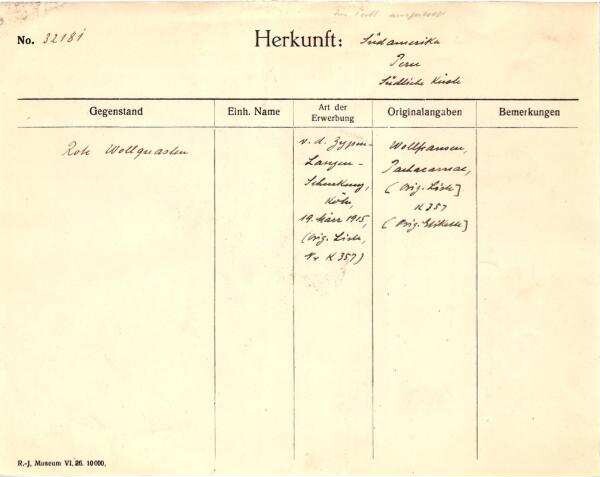 No. 32181
Herkunft: Südamerika
Peru
Südliche Küste
Gegenstand
Einh. Name
Art der Erwerbung
Originalangaben
Bemerkungen
Rote Wollquasten
v. d. Zypen-
Langen-
Schenkung,
Köln,
19. März 1915,
(Orig. Liste,
Nr K 357)
Wollfransen,
Pachacamac,
(Orig. Liste]
K 357
(Orig. Etikette]
R.-J. Museum VI. 26. 10000.